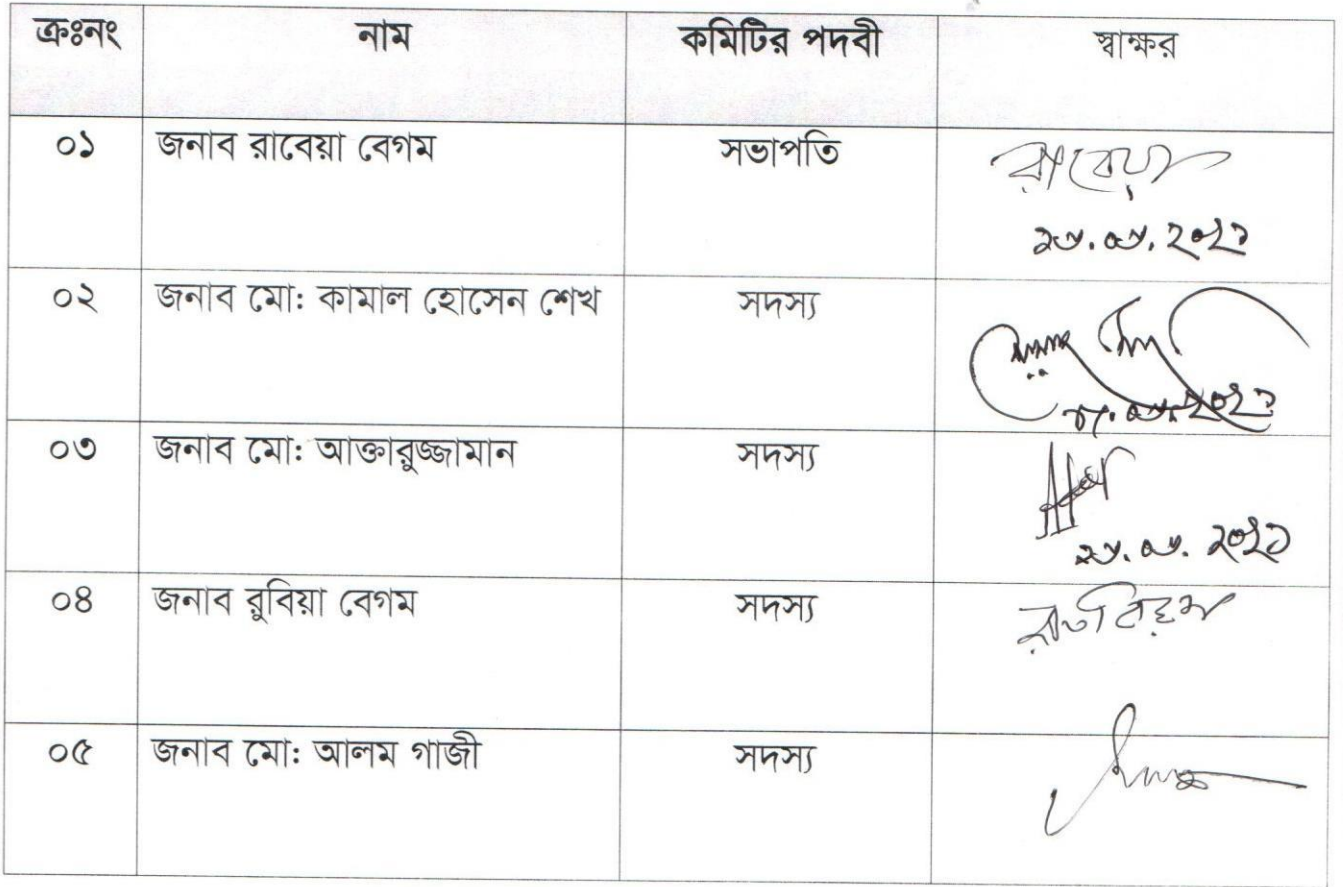 ক্রঃনং নাম কমিটির পদবী স্বাক্ষর
০১ জনাব রাবেয়া বেগম সভাপতি রাবেয়া
০২ জনাব মো: কামাল হোসেন শেখ সদস্য
০৩ জনাব মো: আক্তারুজ্জামান সদস্য
০৪ জনাব রুবিয়া বেগম সদস্য
০৫ জনাব মো: আলম গাজী সদস্য